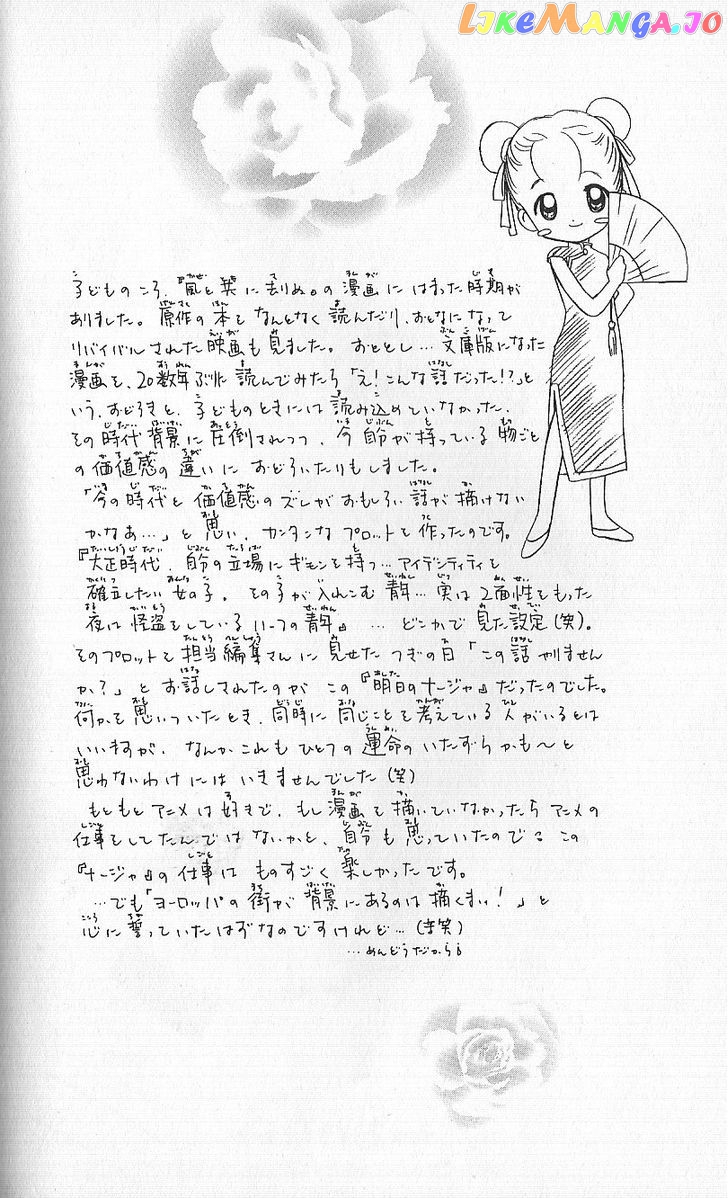 LIKEMANGA.IO
子どものころ、『風と共に去りぬ』の漫画にはまった時期が
ありました。原作の本をなんとなく読んだり、おとなになって
リバイバルされた映画も見ました。おととし…文庫版になった
漫画を、20数年ぶりに読んでみたら「え!こんな話だった!?」と
いう、おどろきと、子どものときには読み込めていなかった、
その時代背景に圧倒されつつ、今自分が持っている物ごと
の価値感の違いにおどろいたりもしました。
「今の時代と価値感のズレがおもしろい話が描けない
かなあ…」と思い、カンタンなプロットを作ったのです。
『大正時代、自分の立場にギモンを持つ…アイデンティティを
確立したい女の子。その子が入れこむ青年…実は2面性をもった
夜は怪盗をしているいっつの青年』…どこかで見た設定(笑)。
そのプロットを担当編集さんに見せたつぎの日「この話やりません
か?」とお話しされたのがこの『明日のナージャ』だったのでした。
何かを思いついたとき、同時に同じことを考えている人がいるとは
いいますが、なんかこれもひとつの運命のいたずらかも〜と
思わないわけにはいきませんでした(笑)
もともとアニメは好きで、もし漫画を描いていなかったらアニメの
仕事をしてたんではないかと、自分も思っていたので、この
『ナージャ』の仕事はものすごく楽しかったです。
…でも「ヨーロッパの街が背景にあるのは描くまい!」と
心に誓っていたはずなのですけれど…(苦笑)
…めんどうだから